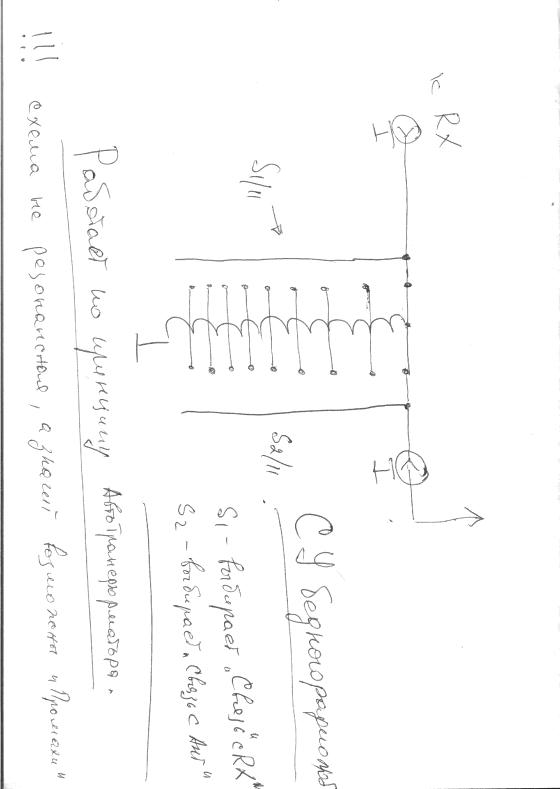 к RX
S1/11
S2/11
СУ бедного
S1 - выбирает „Связь с RX"
S2 - выбирает „Связь с Ант"
Работает по принципу Автотрансформатора.
!!! схема не резонансная, а значит возможны и „Промахи"